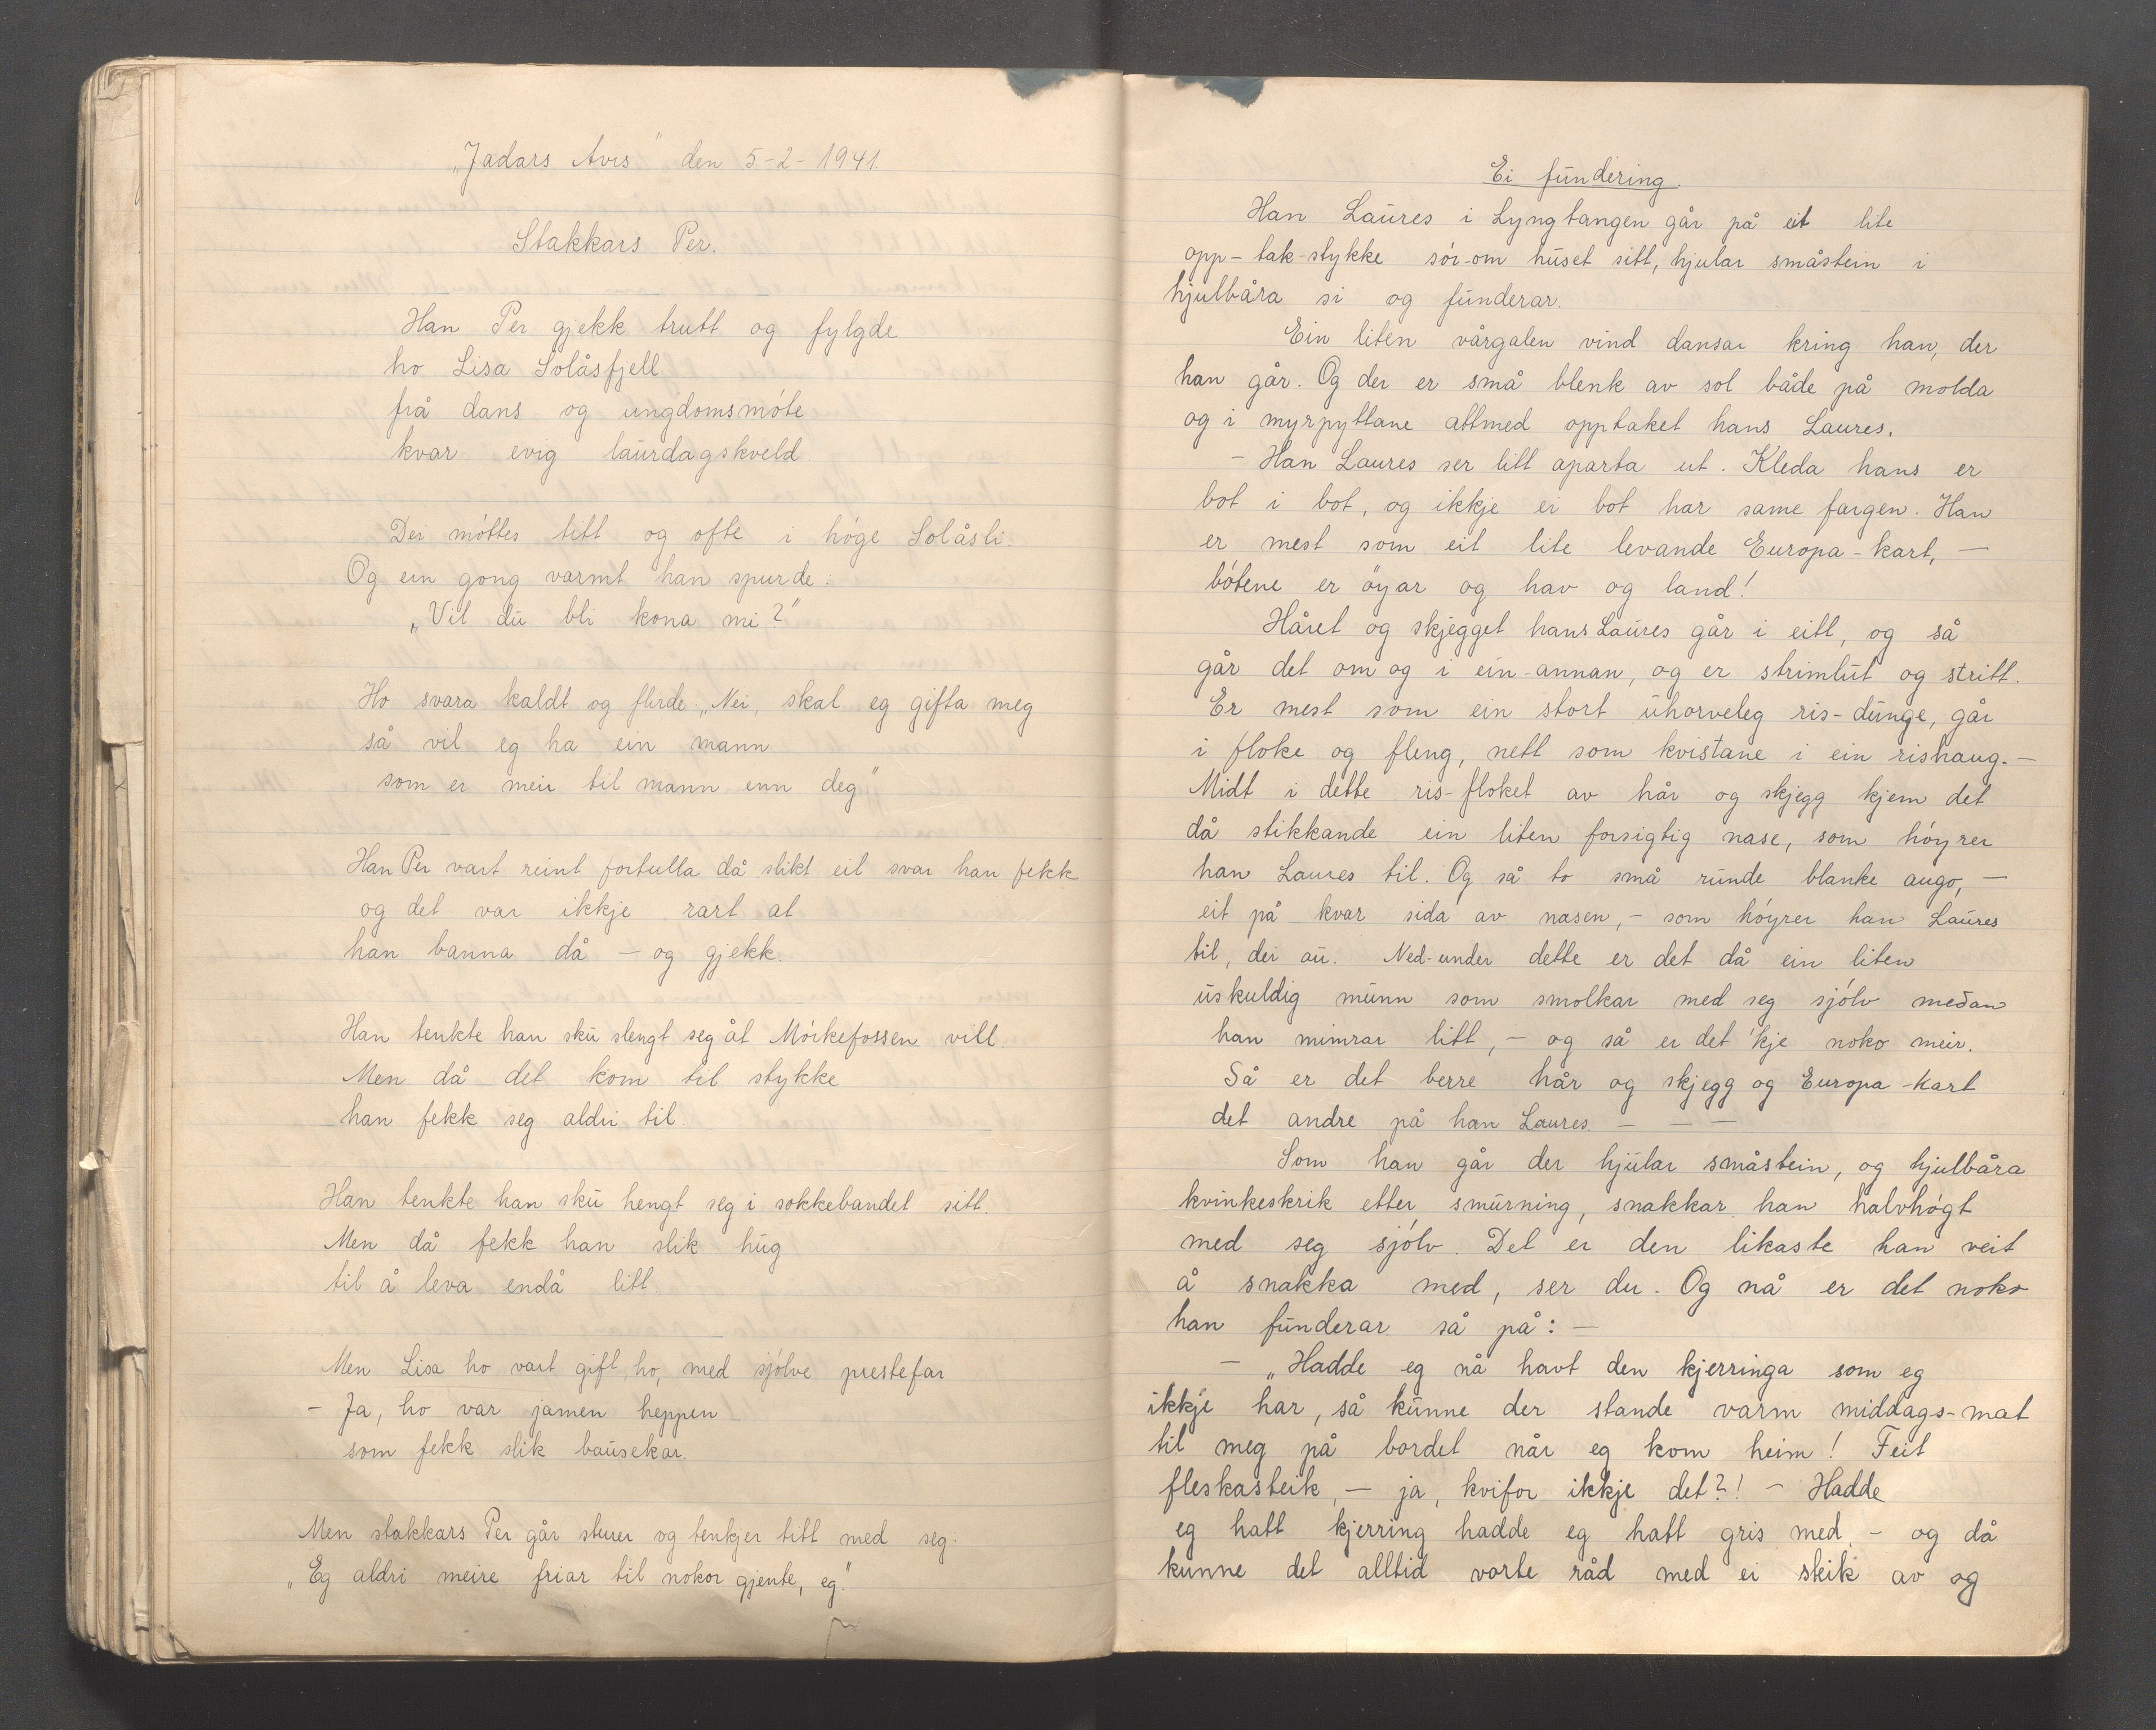 „Jadars Avis" den 5-2-1941.
Stakkars Per.
Han Per gjekk trutt og fylgde
ho Lisa Solåsfjell
frå dans og ungdomsmóte
kvar evig laurdagskveld.
Dei móttes titt og ofte i hóge Solåsli.
Og ein gong varmt han spurde:
„Vil du bli kona mi?"
Ho svara kaldt og flirde: „Nei, skal eg gifta meg
så vil eg ha ein mann
som er meir til mann enn deg"
Han Per vart reint fortulla då slikt eit svar han fekk
og det var ikkje rart at
han banna då – og gjekk.
Han tenkte han sku slengt seg åt Mórkefossen vill.
Men då det kom til stykke
han fekk seg aldri til.
Han tenkte han sku hengt seg i sokkebandet sitt.
Men då fekk han slik hug
til å leva endå litt.
Men Lisa ho vart gift, ho, med sjólve prestefar
– Ja, ho var jamen heppen
som fekk slik bausekar.
Men stakkars Per går sturer og tenkjer titt med seg:
„Eg aldri meire friar til nokor gjente, eg."
Ei fundering.
Han Laures i Lyngtangen går på eit lite
opp-tak-stykke sór-om huset sitt, hjular småstein i
hjulbåra si og funderar.
Ein liten vårgalen vind dansar kring han, der
han går. Og der er små blenk av sol både på molda
og i myrpyttane attmed opptaket hans Laures.
– Han Laures ser litt aparta ut. Kleda hans er
bot i bot, og ikkje ei bot har same fargen. Han
er mest som eit lite levande Europa-kart, –
bótene er óyar og hav og land!
Håret og skjegget hans Laures går i eitt, og så
går det om og i ein-annan, og er strimlut og stritt.
Er mest som ein stort uhorveleg ris-dunge, går
i floke og fleng, nett som kvistane i ein rishaug. –
Midt i dette ris-floket av hår og skjegg kjem det
då stikkande ein liten forsigtig nase, som hóyrer
han Laures til. Og så to små runde blanke augo, –
eit på kvar sida av nasen, – som hóyrer han Laures
til, dei au. Ned-under dette er det då ein liten
uskuldig munn som smolkar med seg sjólv medan
han mimrar litt, – og så er det 'kje noko meir.
Så er det berre hår og skjegg og Europa-kart
det andre på han Laures. – – –
Som han går der hjular småstein, og hjulbåra
kvinkeskrik etter smurning, snakkar han halvhógt
med seg sjólv. Det er den likaste han veit
å snakka med, ser du. Og nå er det noko
han funderar så på: –
– „Hadde eg nå havt den kjerringa som eg
ikkje har, så kunne der stande varm middags-mat
til meg på bordet når eg kom heim! Feit
fleskasteik, – ja, kvifor ikkje det?! – Hadde
eg hatt kjerring hadde eg hatt gris med – og då
kunne det alltid vorte råd med ei steik av og